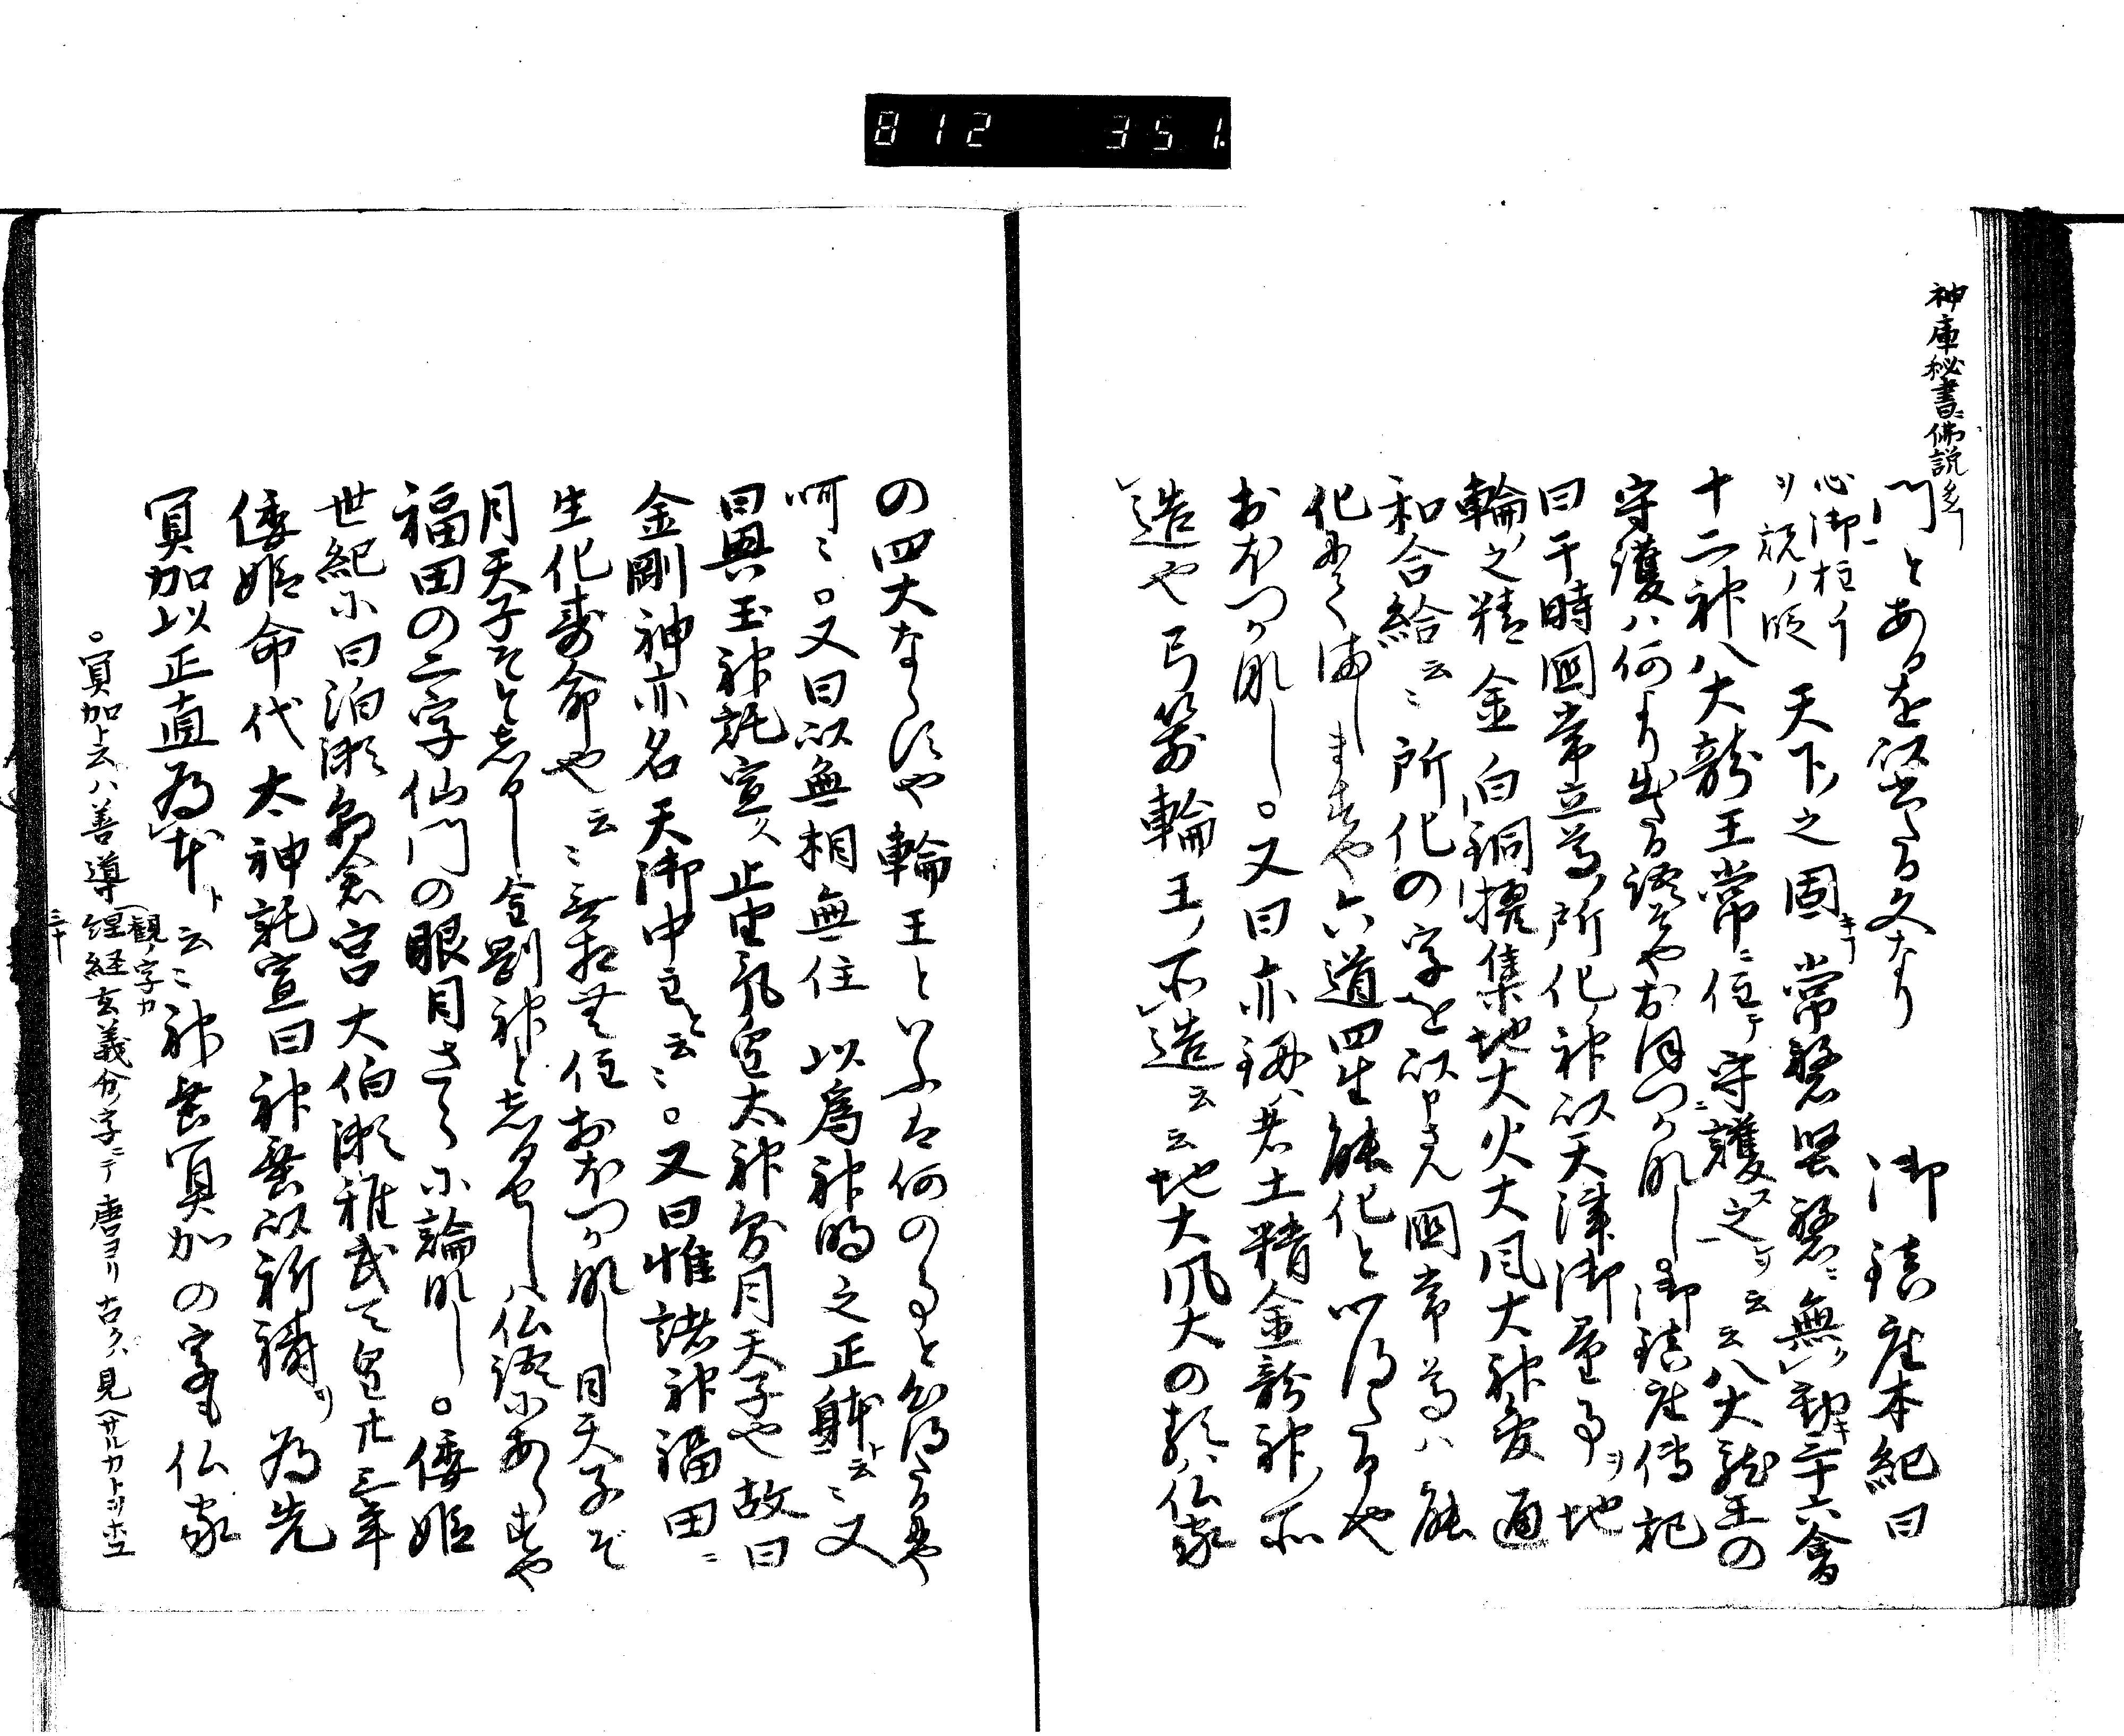 812 351.
神庫秘書ニ佛説多シ
門とあるを以出たる文なり 御鎮座本紀曰
心御柱ノヿ
ヲ説ノ段 天下之固 常磐堅磐ニ無動三十六會
十二神八大龍王常ニ住テ守護之云云八大龍王の
守護ハ何より出たる證そやおほつか那し。御鎮座傳記
曰于時国常立尊所化神以天津御量事ヲ地
輪之精金白銅撰集地大火大風大神変通
和合給云〻所化の字を以申さハ国常尊ハ能
化にてましますや六道四生能化といひたるや
おほつか那し。又曰亦鞆者土精金龍神所
造也弓箭輪王所造云云地大風大の類ハ仏家
の四大ならすや輪王といふは何の事と心得たるや
呵〻。又曰以無相無住以為神明之正躰ト云〻又
曰興玉神託宣久止由気皇太神分月天子也故曰
金剛神亦名天御中主と云〻。又曰惟諸神福田ニ
生化寿命也云〻無相無住おほつか那し月天子そ
月天子そと志るし金剛神と志るせしハ仏語にあらすや
福田の二字仙門の眼目さらに論那し。倭姫
世紀に曰泊瀬朝倉宮大伯瀬稚武天皇廿三年
倭姫命代太神託宣曰神垂以祈祷ヲ為先
冥加以正直為本ト云〻神垂冥加の字も仏家
。冥加ト云ハ善導(観ノ字カ)経経玄義分字ニテ唐ヨリ古クハ見ヘサルカトヲホユ
三十